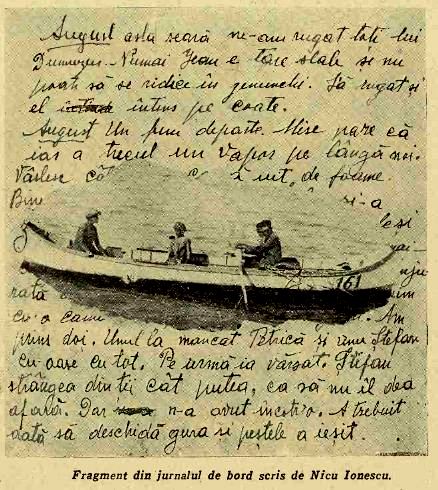 August asta seară ne-am rugat toți lui
Dumnezeu. Numai Jean e tare slab și nu
poate să se ridice în genunchi. S'a rugat și
el întins pe coate.
August Un fum departe. Mi se pare că
iar a trecut un vapor pe lângă noi.
Vâslesc uit, de foame.
și-a
rată
cu o
Am
prins doi. Unul la mancat Petrică și unu Ștefan
cu oase cu tot. Pe urmă ia vărsat. Ștefan
strângea dinții cât putea, ca să nu îl dea
afară. Dar n-a avut încotro. A trebuit
odată să deschidă gura și peștele a ieșit.
161
Fragment din jurnalul de bord scris de Nicu Ionescu.